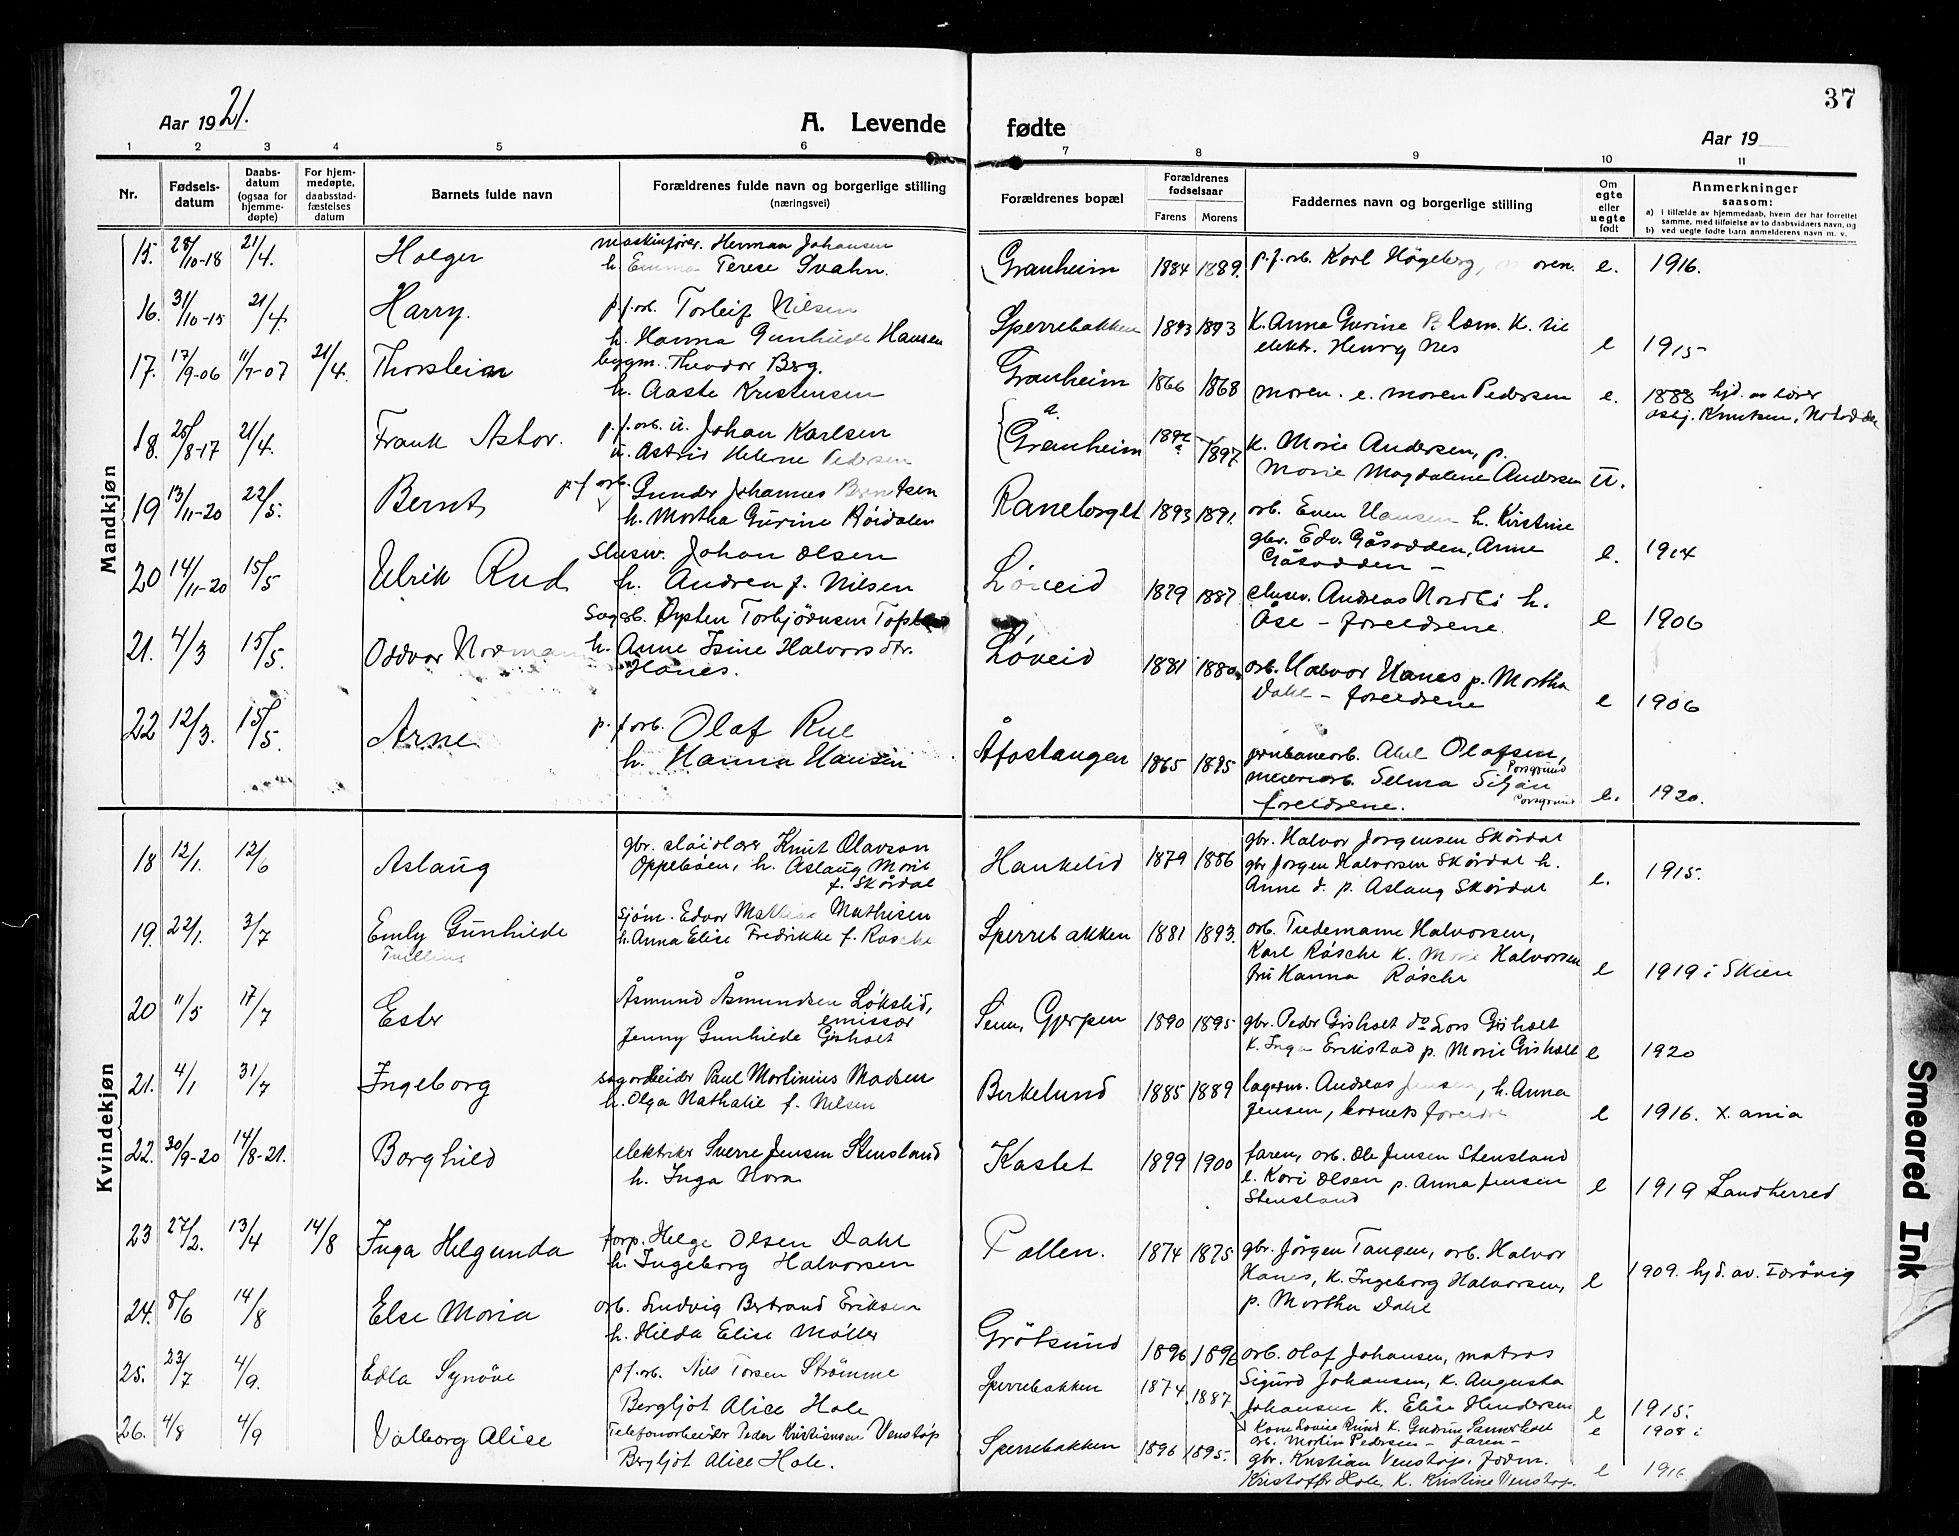 37
Aar 19 21.
A. Levende fødte
Aar 19
1 2 3 4 5 6 7 8 9 10 11
Nr.
Fødsels-
datum
Daabs-
datum
(ogsaa for
hjemme-
døpte)
For hjem-
medøpte,
daabsstad-
fæstelses
datum
Barnets fulde navn
Forældrenes fulde navn og borgerlige stilling
(næringsvei)
Forældrenes bopæl
Forældrenes
fødselsaar
Farens Morens
Faddernes navn og borgerlige stilling
Om
egte
eller
uegte
født
Anmerkninger
saasom:
a) i tilfælde av hjemmedaab, hvem der har forrettet
samme, med tilføielse av to daabsvidners navn, og
b) ved uegte fødte barn anmelderens navn m. v.
Mandkjøn
15. 28/10-18 21/4. Holger
maskinfører. Herman Johansen
h. Emma Terese Svahn.
Granheim 1884 1889. p.f.orb. Karl Högeberg, moren. e. 1916.
16. 31/10-15 21/4 Harry.
p.f.orb. Torleif Nilsen
h. Hanna Gunhilde Hansen
Sperrebakken 1893 1893 K. Anna Gurine Blom. K. til
elektr. Henry Nes e 1915
17. 17/9-06 11/7-07 21/4. Thorstein
bygm. Theodor Berg.
h. Aaste Kristensen
Granheim 1866 1868 moren. e. moren Pedersen e. 1888 hjd. av lærer
Knutsen, Notodden
18. 25/8-17 21/4. Frank Astor.
p.f.orb. u. Johan Karlsen
u. Astrid Helene Pedersen
Granheim 1892 1897 K. Marie Andersen, p.
Marie Magdalene Andersen u.
19 13/11-20 22/5. Bernt
p.f.orb. Gunder Johannes Berntsen
h. Martha Gurine Høidalen
Raneborget 1893 1891. orb. Even Hansen h. Kristine
gbr. Edv. Gåsodden, Anne
Gåsodden – e. 1914
20 14/11-20 15/5 Ulrik Rud
slusev. Johan Olsen
h. Andrea f. Nilsen
Løveid 1879 1887 slusev. Andreas Nordbö h.
Åse – foreldrene e 1906
21. 4/3 15/5. Oddvar Norman
sagarb. Øysten Torbjörnsen
h. Anne Isine Halvorsdtr.
Hanes.
Løveid 1881 1880 orb. Halvor Hanes p. Martha
Dahl – foreldrene e 1906
22 12/3. 15/5. Arne
p.f.orb. Olaf Rul
h. Hanna Hansen
Åfostangen 1865 1895 jernbanearb. Olafsen,
Porsgrund
meieriarb. Selma Siljan
Porsgrund
foreldrene. e. 1920.
Kvindekjøn
18 12/1. 12/6 Aslaug
gbr. sløidlærer Knut Olavson
Oppebøen, h. Aslaug Marie
f. Skårdal
Haukelid 1879 1886 gbr. Halvor Jorgensen Skårdal
gbr Jorgen Halvorsen Skårdal h.
Anne d. p. Aslaug Skårdal e. 1915.
19. 22/1. 3/7 Emly Gunhilde
Tvilling
sjøm. Edvar Mathias Mathisen
h. Anna Elise Fredrikke f. Rasche
Sperrebakken 1881 1893. orb. Tidemann Halvorsen,
Karl Råsche K. Marie Halvorsen
fru Hanna Råsche e 1919 i Skien
20 11/5 17/7 Ester
Åsmund Åsmundsen Løkslid,
emissær
Jenny Gunhilde Gisholt
Senn, Gjerpen 1890 1895 gbr. Peder Gisholt do Lars Gisholt
K. Inga Erikstad p. Marie Gisholt e 1920
21. 4/1 31/7 Ingeborg
sagarbeider Paul Martinius Madsen
h. Olga Nathalie f. Nilsen
Birkelund 1885 1889 lagerm. Andreas Jensen, h. Anna
Jensen, barnets foreldre e 1916. X.ania
22. 30/9-20 14/8-21. Borghild
elektriker Sverre Jensen Stensland
h. Inga Nora
Kastet 1899 1900 faren, orb. Ole Jensen Stensland
e. Kari Olsen p. Anna Jensen
Stensland e 1919 Sandherred
23 27/2. 13/4 14/8 Inga Helgunda
forp. Helge Olsen Dahl
h. Ingeborg Halvorsen
Pollen. 1874 1875 gbr. Jörgen Tangen, orb. Halvor
Hanes, K. Ingeborg Halvorsen,
p. Martha Dahl e 1909. hjd. av.
24. 8/6 14/8 Else Maria
orb. Ludvig Bertrand Eriksen
h. Hilda Elise Møller
Grötsund 1896 1896 orb. Olaf Johansen, matros
Sigurd Johansen, K. Augusta
Johansen K. Elise Hendersen e 1915.
25. 23/7 4/9. Edla Synöve
p.f.orb. Nils Torsen Strömme
Bergljot Alice Hole
Sperrebakken 1874 1887 Karen Lovise Rund K. Gudrun
orb. Martin Pedersen – faren – e 1908 i
26. 4/8 4/9 Valborg Alise
Telefonarbeider Peder Kristiansen Venstøp
Bergljot Alice Hole.
Sperrebakken 1896 1895. gbr. Kristian Venstøp, jordm.
Kristoffer Hole, K. Kristine Venstøp. e 1916
Smeared Ink